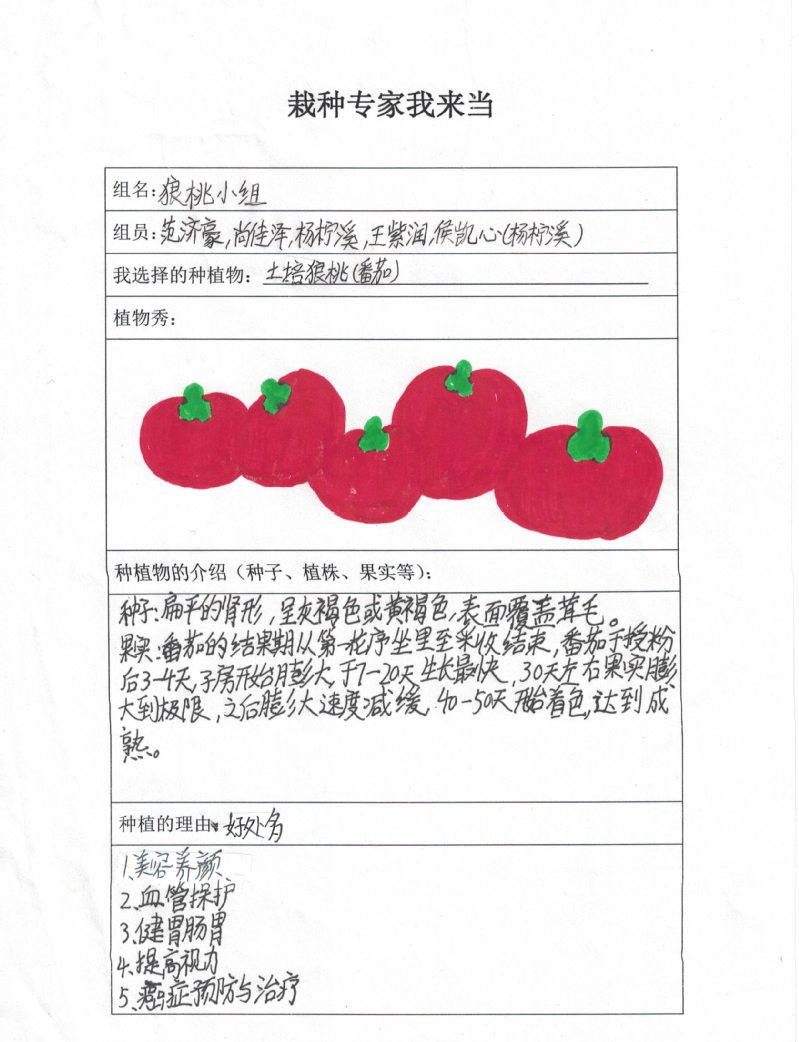 栽种专家我来当
组名:狼桃小组
组员:范济豪,尚佳泽,杨柠溪,王紫润,侯凯心(杨柠溪)
我选择的种植物:土培狼桃(番茄)
植物秀:
种植物的介绍(种子、植株、果实等):
种子:扁平的肾形,呈灰褐色或黄褐色,表面覆盖茸毛。
果实:番茄的结果期从第一花序坐里至采收结束,番茄于授粉
后3-4天,子房开始膨大,于7-20天生长最快,30天左右果实膨
大到极限,之后膨大速度减缓,40-50天开始着色,达到成
熟。
种植的理由:好处多
1、美容养颜
2、血管保护
3、健胃肠胃
4、提高视力
5、癌症预防与治疗